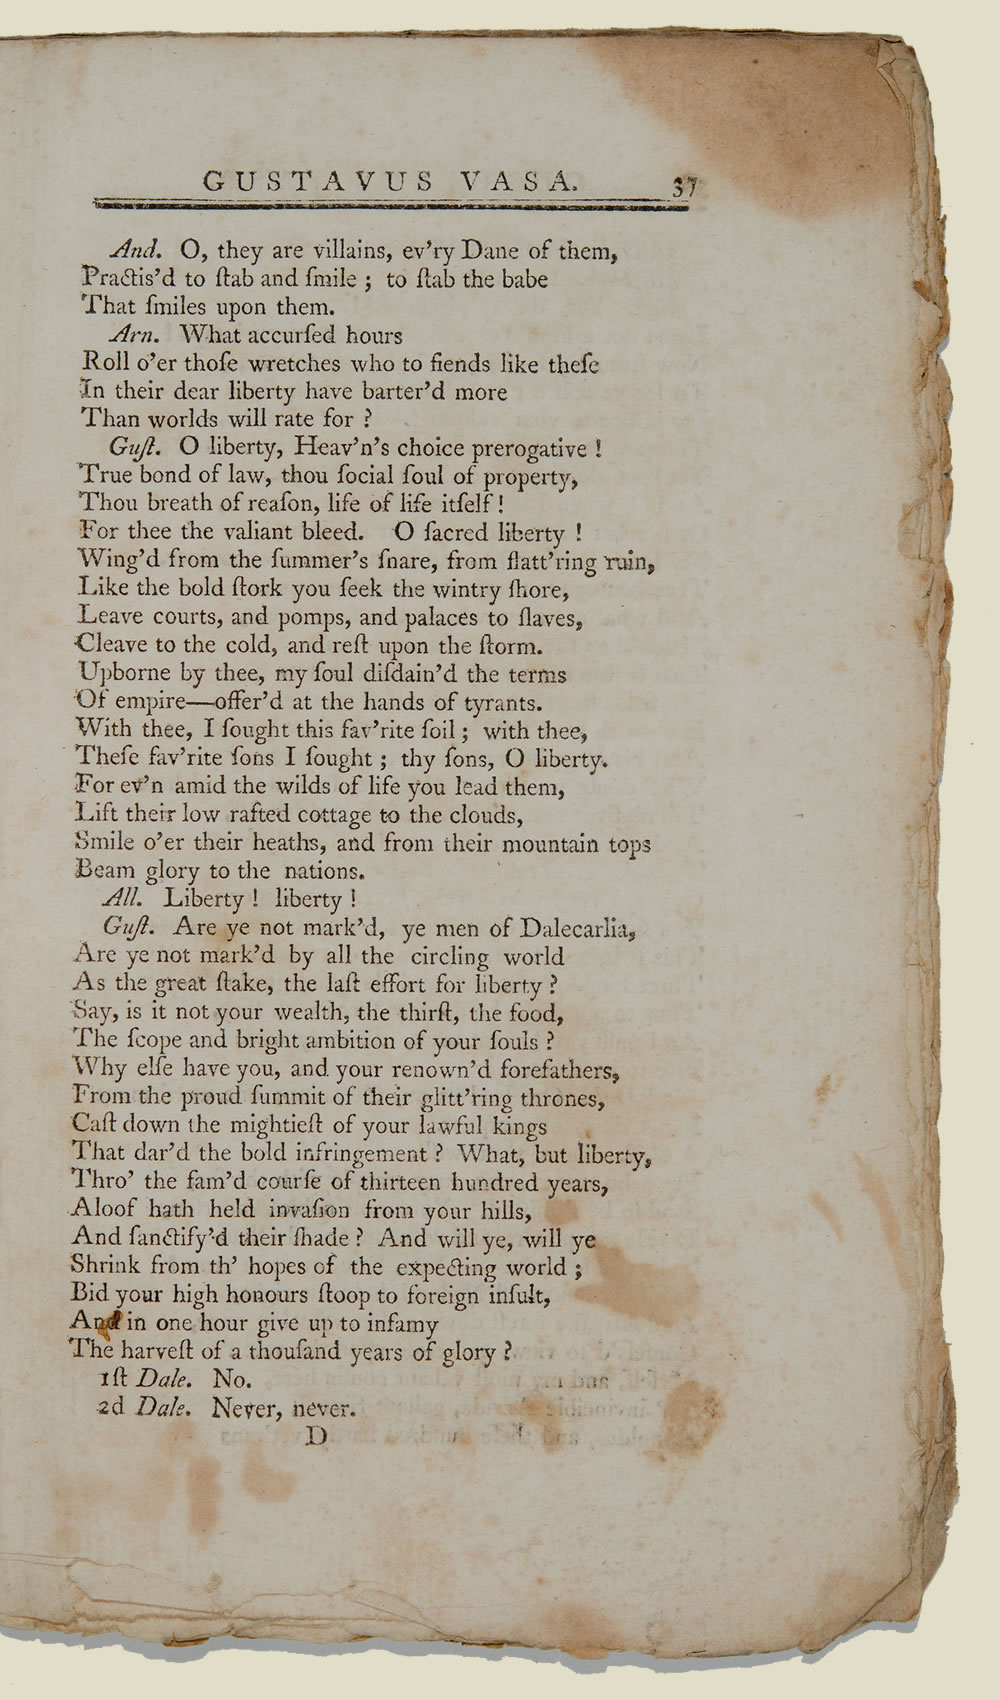 GUSTAVUS VASA. 37
And. O, they are villains, ev'ry Dane of them,
Practis'd to ſtab and ſmile ; to ſtab the babe
That ſmiles upon them.
Arn. What accurſed hours
Roll o'er thoſe wretches who to fiends like theſe
In their dear liberty have barter'd more
Than worlds will rate for ?
Guſt. O liberty, Heav'n's choice prerogative !
True bond of law, thou ſocial ſoul of property,
Thou breath of reaſon, life of life itſelf !
For thee the valiant bleed. O ſacred liberty !
Wing'd from the ſummer's ſnare, from flatt'ring ruin,
Like the bold ſtork you ſeek the wintry ſhore,
Leave courts, and pomps, and palaces to ſlaves,
Cleave to the cold, and reſt upon the ſtorm.
Upborne by thee, my ſoul diſdain'd the terms
Of empire—offer'd at the hands of tyrants.
With thee, I ſought this fav'rite ſoil ; with thee,
Theſe fav'rite ſons I ſought ; thy ſons, O liberty.
For ev'n amid the wilds of life you lead them,
Lift their low rafted cottage to the clouds,
Smile o'er their heaths, and from their mountain tops
Beam glory to the nations.
All. Liberty ! liberty !
Guſt. Are ye not mark'd, ye men of Dalecarlia,
Are ye not mark'd by all the circling world
As the great ſtake, the laſt effort for liberty ?
Say, is it not your wealth, the thirſt, the food,
The ſcope and bright ambition of your ſouls ?
Why elſe have you, and your renown'd forefathers,
From the proud ſummit of their glitt'ring thrones,
Caſt down the mightieſt of your lawful kings
That dar'd the bold infringement ? What, but liberty,
Thro' the fam'd courſe of thirteen hundred years,
Aloof hath held invaſion from your hills,
And ſanctify'd their ſhade ? And will ye, will ye
Shrink from th' hopes of the expecting world ;
Bid your high honours ſtoop to foreign inſult,
And in one hour give up to infamy
The harveſt of a thouſand years of glory ?
1ſt Dale. No.
2d Dale. Never, never.
D